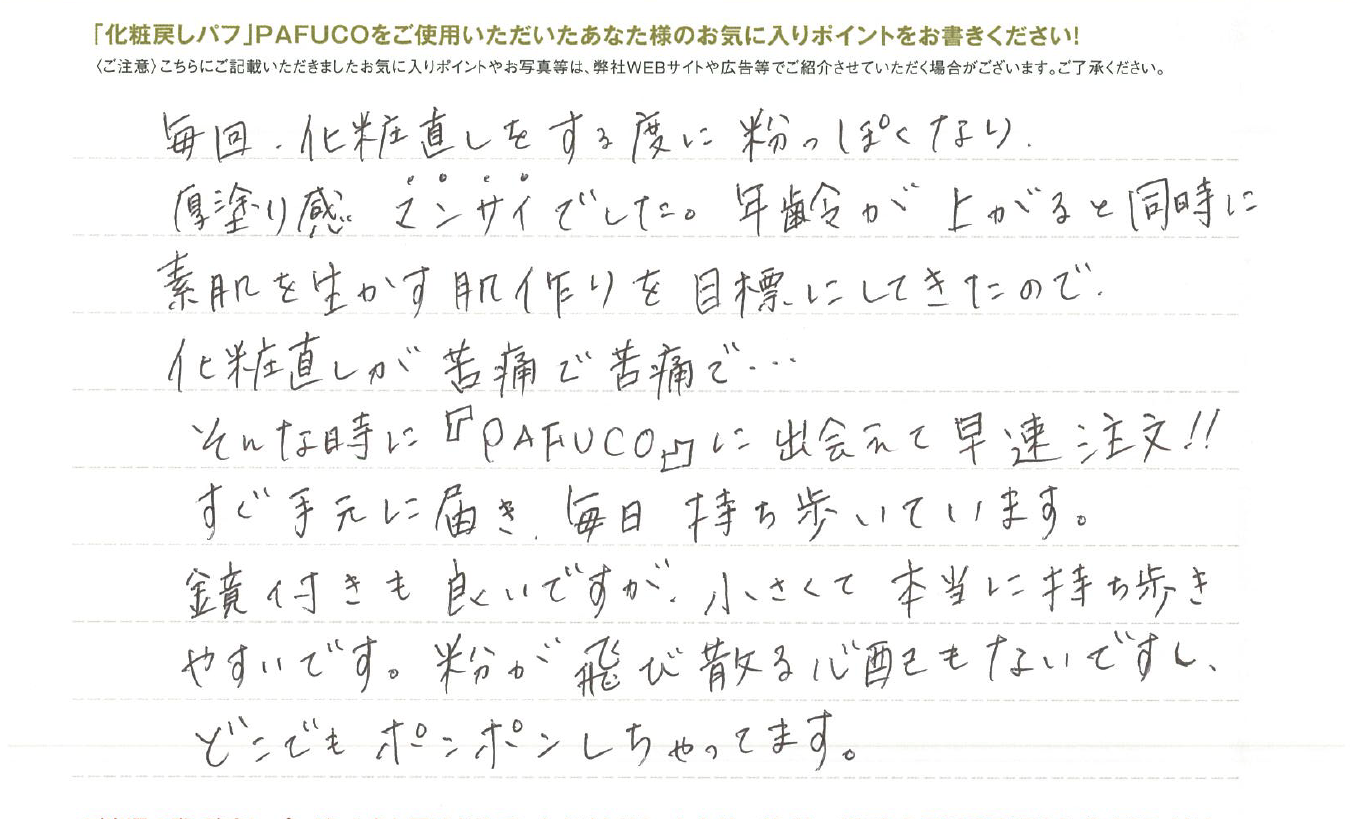 「化粧戻しパフ」PAFUCOをご使用いただいたあなた様のお気に入りポイントをお書きください!
〈ご注意〉こちらにご記載いただきましたお気に入りポイントやお写真等は、弊社WEBサイトや広告等でご紹介させていただく場合がございます。ご了承ください。
毎回、化粧直しをする度に粉っぽくなり、
厚塗り感 マンサイでした。年齢が上がると同時に
素肌を生かす肌作りを目標にしてきたので、
化粧直しが苦痛で苦痛で…
そんな時に『PAFUCO』に出会えて早速注文!!
すぐ手元に届き、毎日持ち歩いています。
鏡付きも良いですが、小さくて本当に持ち歩き
やすいです。粉が飛び散る心配もないですし、
どこでもポンポンしちゃってます。